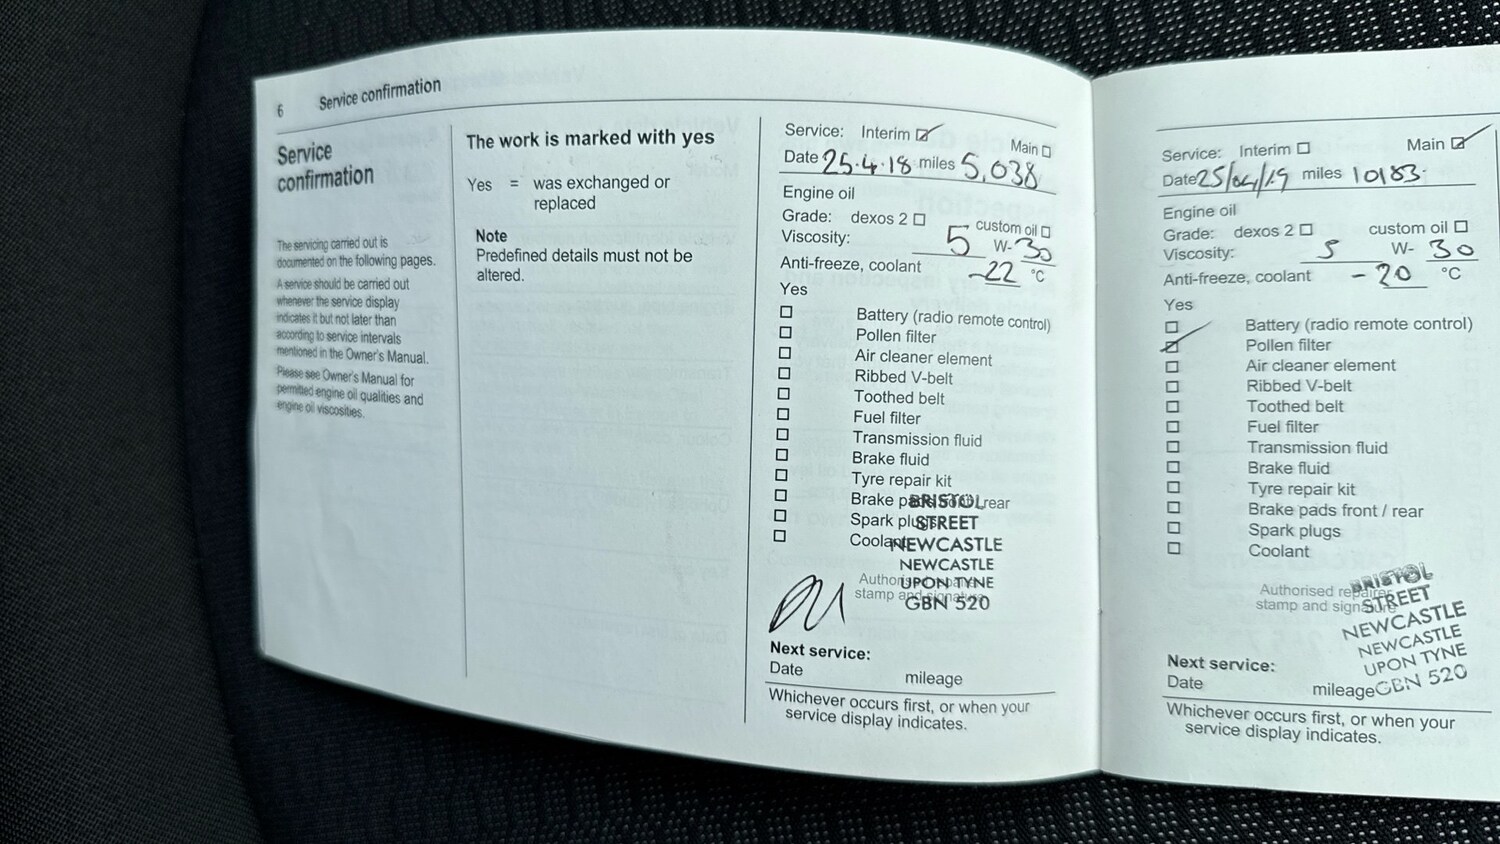 6 Service confirmation
Service
confirmation
The servicing carried out is
documented on the following pages.
A service should be carried out
whenever the service display
indicates it but not later than
according to service intervals
mentioned in the Owner's Manual.
Please see Owner's Manual for
permitted engine oil qualities and
engine oil viscosities.
The work is marked with yes
Yes = was exchanged or
replaced
Note
Predefined details must not be
altered.
Service: Interim ☑ Main ☐
Date 25.4.18 miles 5,038
Engine oil
Grade: dexos 2 ☐ custom oil ☐
Viscosity: 5 W- 30
Anti-freeze, coolant -22 °C
Yes
☐ Battery (radio remote control)
☐ Pollen filter
☐ Air cleaner element
☐ Ribbed V-belt
☐ Toothed belt
☐ Fuel filter
☐ Transmission fluid
☐ Brake fluid
☐ Tyre repair kit
☐ Brake pads front / rear
☐ Spark plugs
☐ Coolant
Authorised repairer
stamp and signature
BRISTOL
STREET
NEWCASTLE
NEWCASTLE
UPON TYNE
GBN 520
Next service:
Date mileage
Whichever occurs first, or when your
service display indicates.
Service: Interim ☐ Main ☑
Date 25/04/19 miles 10183.
Engine oil
Grade: dexos 2 ☐ custom oil ☐
Viscosity: 5 W- 30
Anti-freeze, coolant -20 °C
Yes
☐ Battery (radio remote control)
☑ Pollen filter
☐ Air cleaner element
☐ Ribbed V-belt
☐ Toothed belt
☐ Fuel filter
☐ Transmission fluid
☐ Brake fluid
☐ Tyre repair kit
☐ Brake pads front / rear
☐ Spark plugs
☐ Coolant
Authorised repairer
stamp and signature
BRISTOL
STREET
NEWCASTLE
NEWCASTLE
UPON TYNE
GBN 520
Next service:
Date mileage
Whichever occurs first, or when your
service display indicates.